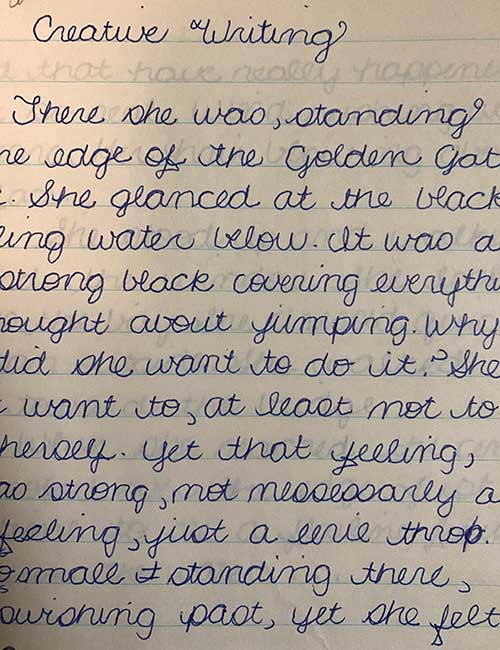 Creative Writing
There she was, standing
he edge of the Golden Gat
. She glanced at the black
ling water below. It was a
strong black covering everythi
hought about jumping. Why
did she want to do it? She
t want to, at least not to
herself. Yet that feeling,
as strong, not nessessarily a
feeling, just a eerie throp.
small I standing there,
ourishing past, yet she felt